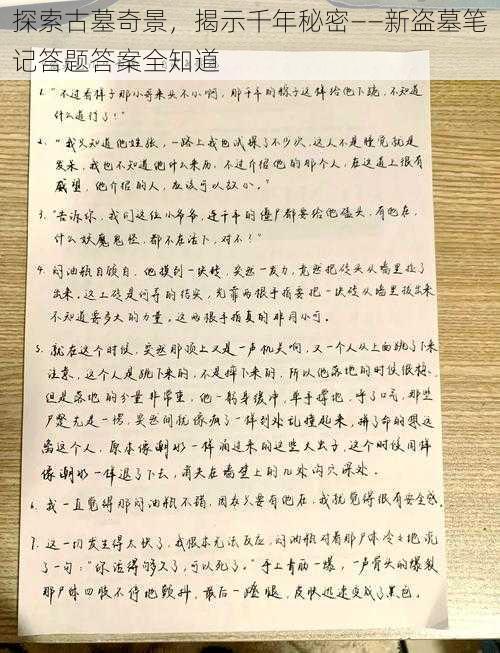 探索古墓奇景，揭示千年秘密——新盗墓笔
记答题答案全知道
1. "不过看样子那小哥来头不小啊，那千年的粽子这样给他下跪，不知道
什么道行了！"
2. "我只知道他姓张，一路上我也试探了不少次，这人不是睡觉就是
发呆，我也不知道他什么来历，不过介绍他的那个人，在这道上很有
威望，他介绍的人，应该可以放心。"
3. "告诉你，我们这位小爷爷，连千年的僵尸都要给他磕头，有他在，
什么妖魔鬼怪，都不在话下，对不！"
4. 闷油瓶自顾自，他摸到一块砖，突然一发力，竟然把砖头从墙里拉了
出来。这土砖是何等的结实，光靠两根手指要把一块砖从墙里拔出来
不知道要多大的力量。这两根手指真的非同小可。
5. 就在这个时候，突然那顶上又是一声机关响，又一个人从上面跳了下来
注意，这个人是跳下来的，不是摔下来的，所以他落地的时候很稳。
但是落地的分量非常重，他一躬身缓冲，单手撑地，哼了口气，那些
尸蟞先是一愣，突然间就像疯了一样到处乱撞起来，拼了命的想远
离这个人，原本像潮水一样涌过来的这些大虫子，这个时候同样
像潮水一样退了下去，消失在墙壁上的几处沟穴深处。
6. 我一直觉得那闷油瓶不错，因为只要有他在，我就觉得很有安全感。
7. 这一切发生得太快了，我根本无法反应，闷油瓶对着那尸体冷冷地说
了一句："你活得够久了，可以死了。"手上青筋一爆，一声骨头的爆裂
那尸体四肢不停地颤抖，最后一蹬腿，皮肤迅速变成了黑色。